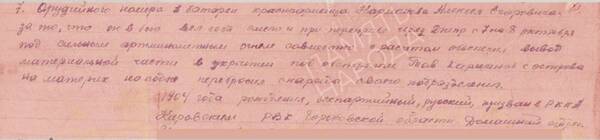 7. Орудийного номера 2 батареи красноармейца Карманова Алексея Егоровича
за то, что он в бою вел себя смело и при переправе через Днепр с 7 на 8 октября
под сильным артминометным огнем совместно с расчетом обеспечил вывод
материальной части в укрытие под обстрелом Тов Карманов с острова
на материк на себе перебросил снаряды своего подразделения.
1904 года рождения, беспартийный, русский, призван в РККА
Кировским РВК Горьковской области. Домашний адрес: